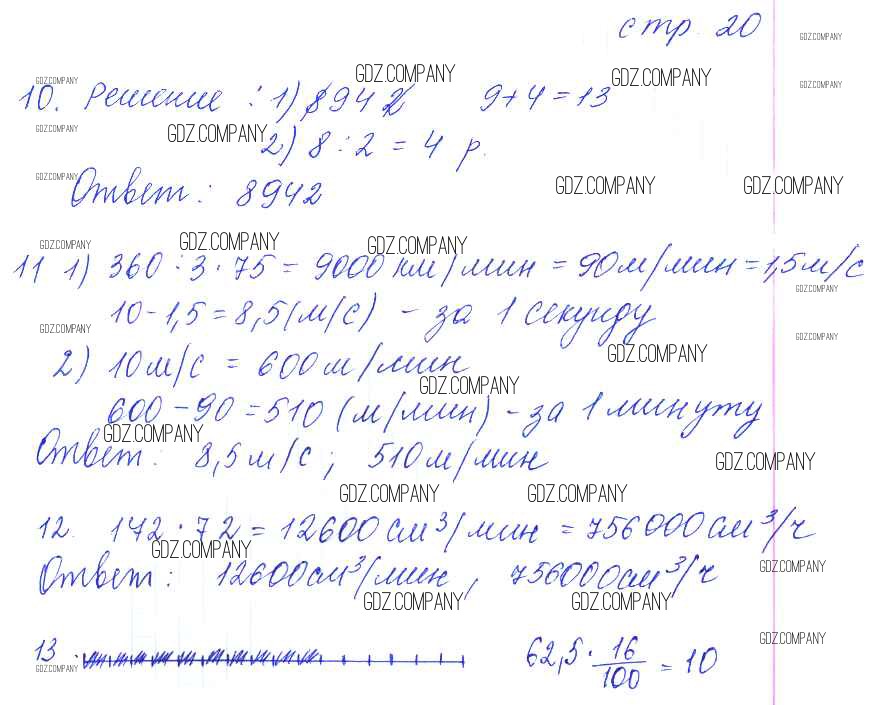 стр. 20
10. Решение : 1) 8942 9+4=13
2) 8 : 2 = 4 р.
Ответ : 8942
11 1) 360 : 3 · 75 = 9000 км/мин = 90м/мин = 1,5м/с
10 - 1,5 = 8,5(м/с) - за 1 секунду
2) 10м/с = 600 м/мин
600 - 90 = 510 (м/мин) - за 1 минуту
Ответ : 8,5м/с ; 510м/мин
12. 142 · 72 = 12600 см³/мин = 756000 см³/ч
Ответ : 12600см³/мин , 756000см³/ч
13 · 62,5 · 16/100 = 10
GDZ.COMPANY